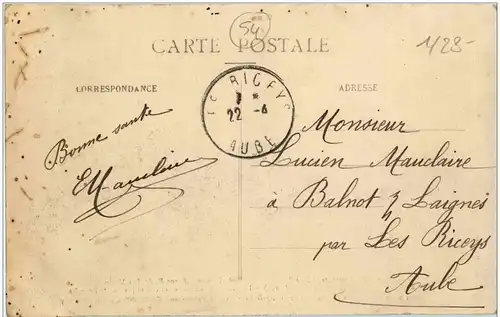 54
1/28-
CARTE POSTALE
CORRESPONDANCE
ADRESSE
LES RICEYS
22 -6
AUBE
Bonne santé
EMauclaire
Monsieur
Lucien Mauclaire
à Balnot s/ Laignes
par Les Riceys
Aube